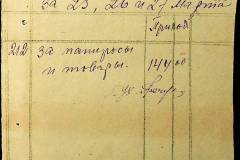 за 25, 26 и 27 Марта
Приход
212 за папиросы
и товары. 144 00